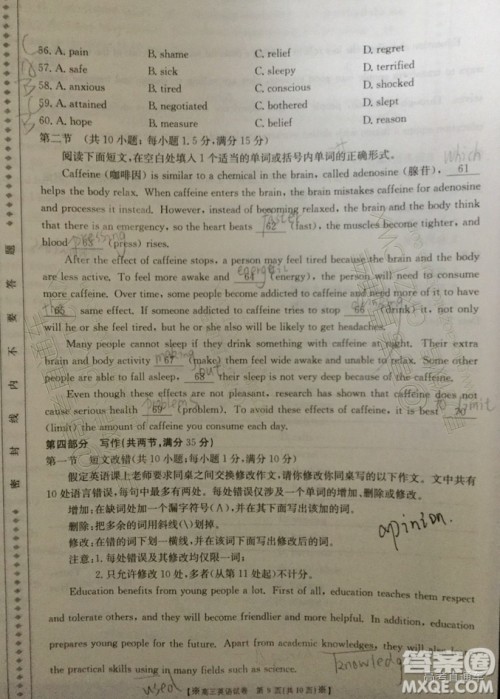 56. A. pain B. shame C. relief D. regret
57. A. safe B. sick C. sleepy D. terrified
58. A. anxious B. tired C. conscious D. shocked
59. A. attained B. negotiated C. bothered D. slept
60. A. hope B. measure C. belief D. reason
第二节 (共10小题;每小题1.5分,满分15分)
阅读下面短文,在空白处填入1个适当的单词或括号内单词的正确形式。
which
Caffeine (咖啡因) is similar to a chemical in the brain, called adenosine (腺苷), 61
helps the body relax. When caffeine enters the brain, the brain mistakes caffeine for adenosine
and processes it instead. However, instead of becoming relaxed, the brain and the body think
faster
that there is an emergency, so the heart beats 62 (fast), the muscles become tighter, and
pressing
blood 63 (press) rises.
After the effect of caffeine stops, a person may feel tired because the brain and the body
are less active. To feel more awake and 64 (energy), the person will need to consume
more caffeine. Over time, some people become addicted to caffeine and need more of it to have
65 same effect. If someone addicted to caffeine tries to stop 66 (drink) it, not only
will he or she feel tired, but he or she will also be likely to get headaches.
Many people cannot sleep if they drink something with caffeine at night. Their extra
making
brain and body activity 67 (make) them feel wide awake and unable to relax. Some other
but
people are able to fall asleep, 68 their sleep is not very deep because of the caffeine.
Even though these effects are not pleasant, research has shown that caffeine does not
problems
cause serious health 69 (problem). To avoid these effects of caffeine, it is best 70
to limit
(limit) the amount of caffeine you consume every day.
第四部分 写作(共两节,满分35分)
第一节 短文改错(共10小题;每小题1分,满分10分)
假定英语课上老师要求同桌之间交换修改作文,请你修改你同桌写的以下作文。文中共有
10处语言错误,每句中最多有两处。每处错误仅涉及一个单词的增加、删除或修改。
增加:在缺词处加一个漏字符号(∧),并在其下面写出该加的词。
删除:把多余的词用斜线(\)划掉。
修改:在错的词下划一横线,并在该词下面写出修改后的词。
注意:1. 每处错误及其修改均仅限一词;
2. 只允许修改10处,多者(从第11处起)不计分。
opinion.
Education benefits from young people a lot. First of all, education teaches them respect
and tolerate others, and they will become friendlier and more helpful. In addition, education
prepares young people for the future. Apart from academic knowledges, they will also learn
the practical skills using in many fields such as science.
used
高三英语试卷 第9页(共10页)
密 封 线 内 不 要 答 题
答案圈